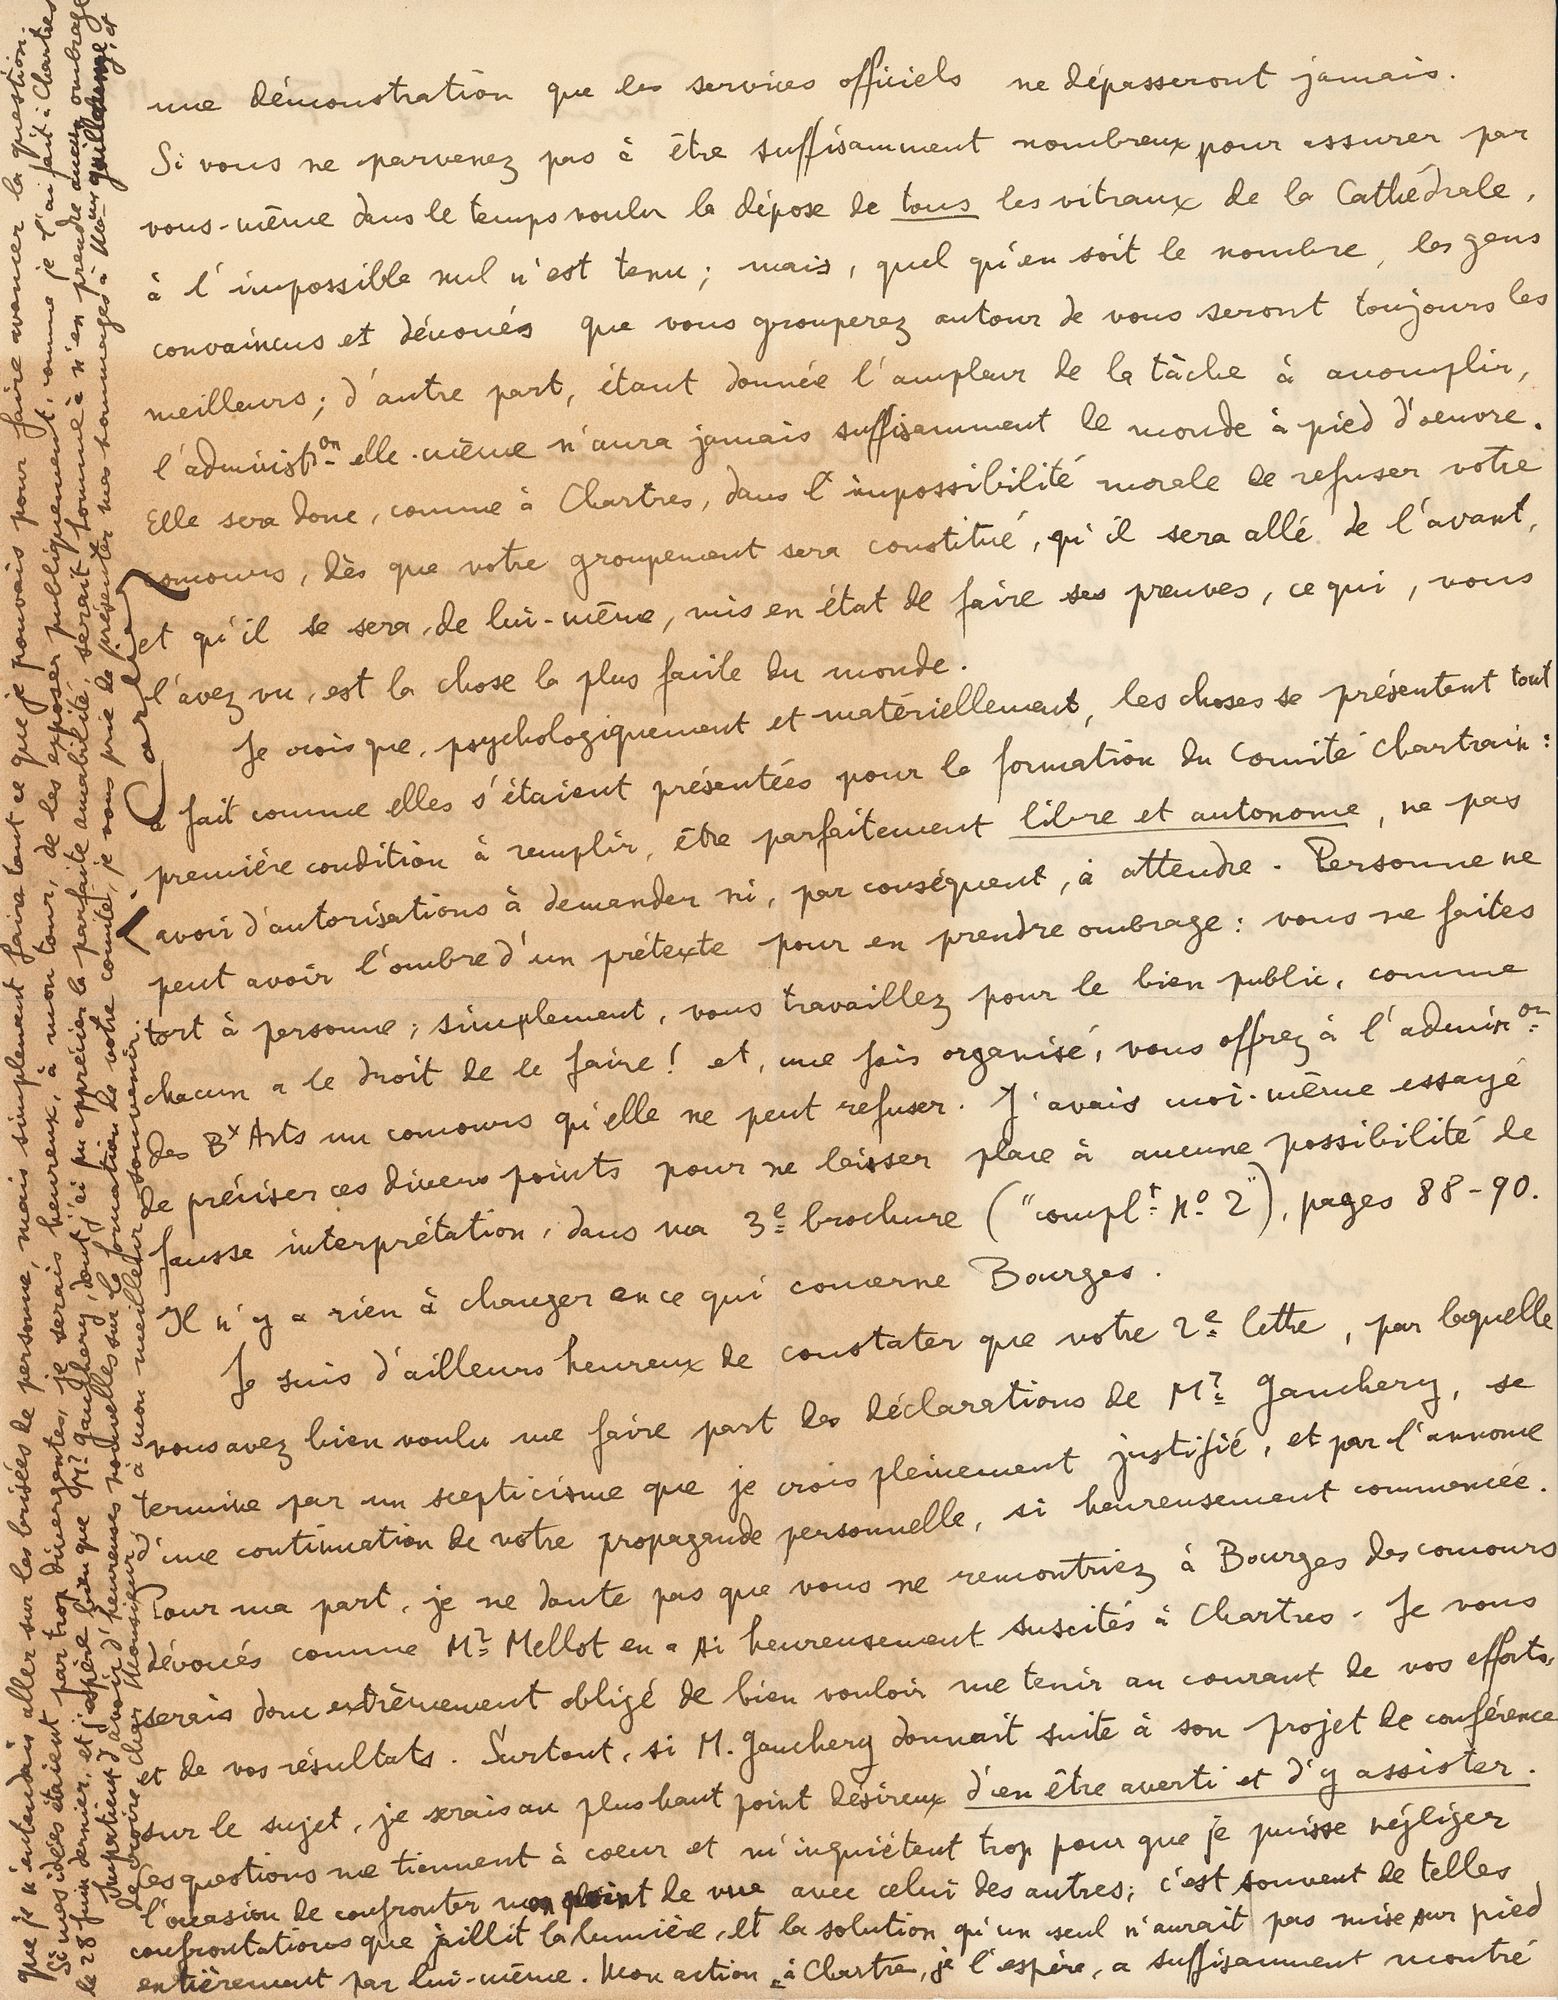 une démonstration que les services officiels ne dépasseront jamais.
Si vous ne parvenez pas à être suffisamment nombreux pour assurer par
vous-même dans le temps voulu la dépose de tous les vitraux de la Cathédrale,
à l'impossible nul n'est tenu ; mais, quel qu'en soit le nombre, les gens
convaincus et dévoués que vous grouperez autour de vous seront toujours les
meilleurs ; d'autre part, étant donnée l'ampleur de la tâche à accomplir,
l'administon elle-même n'aura jamais suffisamment le monde à pied d'oeuvre.
Elle sera donc, comme à Chartres, dans l'impossibilité morale de refuser votre
concours, dès que votre groupement sera constitué, qu'il sera allé de l'avant,
et qu'il se sera, de lui-même, mis en état de faire ses preuves, ce qui, vous
l'avez vu, est la chose la plus facile du monde.
Je crois que, psychologiquement et matériellement, les choses se présentent tout
à fait comme elles s'étaient présentées pour la formation du Comité Chartrain :
première condition à remplir, être parfaitement libre et autonome, ne pas
avoir d'autorisations à demander ni, par conséquent, à attendre. Personne ne
peut avoir l'ombre d'un prétexte pour en prendre ombrage : vous ne faites
tort à personne ; simplement, vous travaillez pour le bien public, comme
chacun a le droit de le faire ! et, une fois organisé, vous offrez à l'adminon
des Bx Arts un concours qu'elle ne peut refuser. J'avais moi-même essayé
de préciser ces divers points pour ne laisser place à aucune possibilité de
fausse interprétation, dans ma 3e brochure ("complt no 2"), pages 88-90.
Il n'y a rien à changer en ce qui concerne Bourges.
Je suis d'ailleurs heureux de constater que votre 2e lettre, par laquelle
vous avez bien voulu me faire part des déclarations de Mr Gauchery, se
termine par un scepticisme que je crois pleinement justifié, et par l'annonce
d'une continuation de votre propagande personnelle, si heureusement commencée.
Pour ma part, je ne doute pas que vous ne rencontriez à Bourges des concours
dévoués comme Mr Mellot en a si heureusement suscités à Chartres. Je vous
serais donc extrêmement obligé de bien vouloir me tenir au courant de vos efforts,
et de vos résultats. Surtout, si M. Gauchery donnait suite à son projet de conférence
sur le sujet, je serais au plus haut point désireux d'en être averti et d'y assister.
Ces questions me tiennent à coeur et m'inquiètent trop pour que je puisse négliger
l'occasion de confronter mon point de vue avec celui des autres ; c'est souvent de telles
confrontations que jaillit la lumière, et la solution qu'un seul n'aurait pas mise sur pied
entièrement par lui-même. Mon action à Chartres, je l'espère, a suffisamment montré
que je n'entendais aller sur les brisées de personne, mais simplement faire tout ce que je pouvais pour faire avancer la question.
Si mes idées étaient par trop divergentes, je serais heureux, à mon tour, de les exposer publiquement, comme je l'ai fait à Chartres
le 28 juin dernier, et j'espère bien que Mr Gauchery, dont j'ai pu apprécier la parfaite amabilité, serait homme à n'en prendre aucun ombrage
Impatient d'avoir d'heureuses nouvelles sur la formation de votre comité, je vous prie de présenter mes hommages à et
de croire, cher Monsieur, à mon meilleur souvenir.
J Carlier